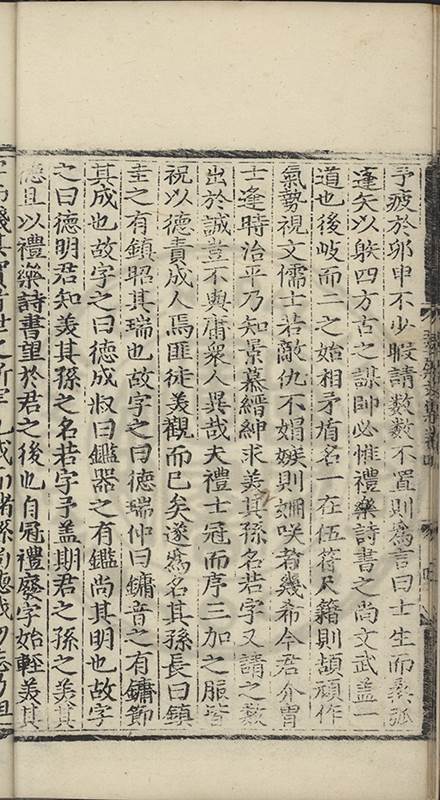 予疲於卯申不少暇請數數不置則爲言曰士生而桑弧
蓬矢以射四方古之謀帥必惟禮樂詩書之尚文武蓋一
道也後岐而二之始相矛盾名一在伍符尺籍則頡頏作
氣勢視文儒士若敵仇不媢嫉則姍咲者幾希今君介冑
士逢時治平乃知景慕縉紳求美其孫名若字又請之數
出於誠豈不與庸衆人異哉夫禮士冠而序三加之服皆
祝以德責成人焉匪徒美觀而已矣遂爲名其孫長曰鎮
圭之有鎮昭其瑞也故字之曰德瑞仲曰鏞音之有鏞節
其成也故字之曰德成叔曰鑑器之有鑑尚其明也故字
之曰德明君知美其孫之名若字予蓋期君之孫之美其
德且以禮樂詩書望於君之後也自冠禮廢字始輕美其